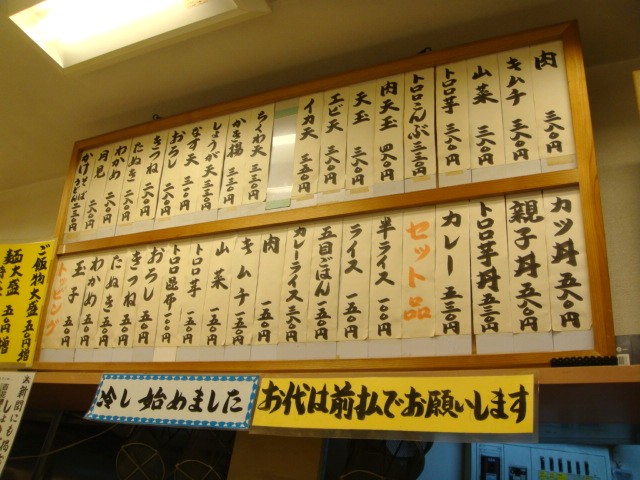 肉 三八〇円
キムチ 三八〇円
山菜 三八〇円
トロロ芋 三八〇円
トロロこんぶ 三三〇円
肉天玉 四八〇円
天玉 三八〇円
エビ天 三八〇円
イカ天 三五〇円
ちくわ天 三三〇円
かき揚 三三〇円
しょうが天 三三〇円
なす天 三三〇円
おろし 二八〇円
きつね 二八〇円
たぬき 二八〇円
わかめ 二八〇円
月見 二八〇円
かけそばうどん 二三〇円
カツ丼 五八〇円
親子丼 五八〇円
トロロ芋丼 五八〇円
カレー 五三〇円
セット品
半ライス 一〇〇円
ライス 一五〇円
五目ごはん 一五〇円
カレーライス 三八〇円
肉 一五〇円
キムチ 一五〇円
山菜 一五〇円
トロロ芋 一五〇円
トロロ昆布 一〇〇円
おろし 五〇円
きつね 五〇円
たぬき 五〇円
わかめ 五〇円
玉子 五〇円
トッピング
ご飯物大盛 五〇円増
麺大盛 五〇円増
冷し 始めました
お代は前払でお願いします